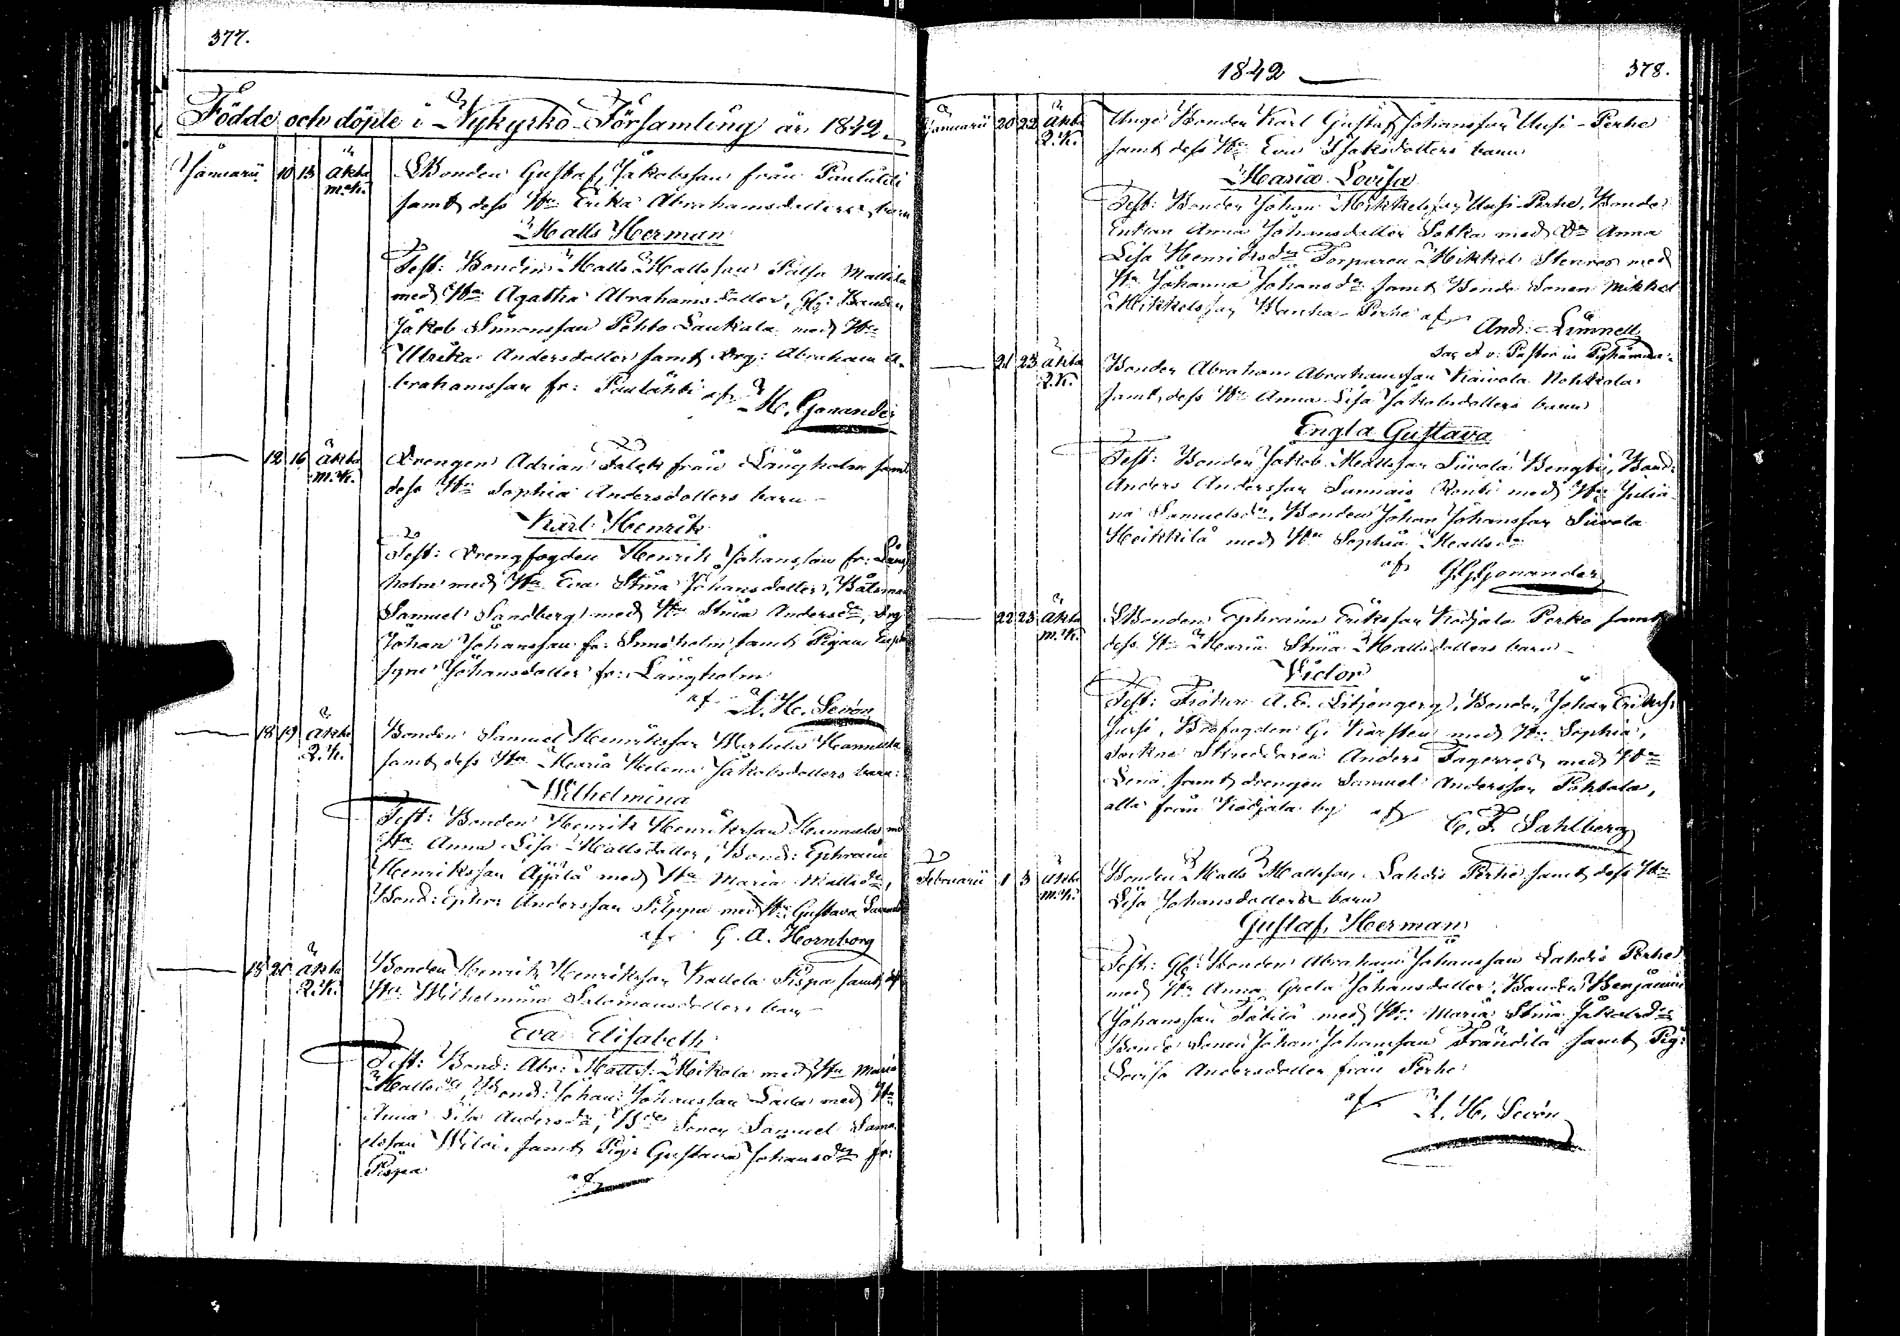 377.
Födde och döpte i Nykyrko Församling år 1842.
Januarii 10 13 äkta Bonden Gustaf Jakobsson från
m.K. samt dess Hu Erika Abrahamsdotters barn
Matts Herman
Test: Bonden Matts Mattsson
med Hu Agatha Abrahamsdotter, Bonden
Jakob Simonsson Pohto Laukola med Hu
Ulrika Andersdotter samt Drg: Abraham A-
brahamsson fr: af H. Gonander
12 16 äkta Drengen Adrian Falck från Långholm samt
m.K. dess Hu Sophia Andersdotters barn
Karl Henrik
Test: Drengfogden Henrik Johansson fr: Lång
holm med Hu Eva Stina Johansdotter, Båtsman
Samuel Sandberg med Hu Stina Andersdr, Drg
Johan Johansson fr: samt Pigan
Johansdotter fr: Långholm
af A. H. Sevón
18 19 äkta Bonden Samuel Henriksson Hannula
Q.K. samt dess Hu Maria Helena Jakobsdotters barn
Wilhelmina
Test: Bonden Henrik Henriksson Hannula med
Hu Anna Lisa Mattsdotter, Bond: Ephraim
Henriksson Äijälä med Hu Maria Mattsdr,
Bond: Ephr: Andersson Pilppa med Hu Gustava
af G. A. Hornborg
18 20 äkta Bonden Henrik Henriksson Kallela Pispa samt
Q.K. Hu Wilhelmina Salomonsdotters barn
Eva Elisabeth
Test: Bond: Abr: Matts: Mikola med Hu Maria
Mattsdr, Bond: Johan Johansson Lalla med Hu
Anna Lisa Andersdr, Sonen Samuel Samu
elsson samt Pig: Gustava Johansdr fr:
Pispa af
1842 378.
Januarii 20 22 äkta Unge Bonden Karl Gustaf Johansson Uusi-Perhe
Q.K. samt dess Hu Eva Isaksdotters barn
Maria Lovisa
Test: Bonden Johan Mikkelsson Uusi-Perhe, Bonde
Enkan Anna Johansdotter Sotka med Anna
Lisa Henriksdr Torparen Mikkel Stenros med
Hu Johanna Johansdr samt Bonde Sonen Mikkel
Mikkelsson Wanha-Perhe af And: Limnell
Past in Pyhämaa
21 23 äkta Bonden Abraham Abrahamsson Kaivola Nohkola
Q.K. samt dess Hu Anna Lisa Jakobsdotters barn
Engla Gustava
Test: Bonden Jakob Mattsson Siivola Bengbi, Bond:
Anders Andersson Sannais Ronbi med Hu Julia
na Samuelsdr, Bonden Johan Johansson Siivola
Heikkilä med Hu Sophia Mattsdr
af Gonander
22 23 äkta Bonden Ephraim Eriksson Kodjala Perko samt
m.K. dess Hu Maria Stina Mattsdotters barn
Victor
Test: Fröken A. E. Bonden Johan Eriks:
Jussi, Brofogden G. Karsten med Hu Sophia,
Sockne Skreddaren Anders Fagerros med Hu
Lena samt drengen Samuel Andersson Pohtola,
alla från Kodjala by af C. F. Sahlberg
Februarii 1 3 äkta Bonden Matts Mattsson Lahdis Perhe samt dess Hu
m.K. Lisa Johansdotters barn
Gustaf Herman
Test: Gl: Bonden Abraham Johansson Lahdis Perhe
med Hu Anna Greta Johansdotter, Bonden Benjamin
Johansson med Hu Maria Stina Jakobsdr
Bonde Sonen Johan Johansson Frändilä samt Pig:
Lovisa Andersdotter från Perhe
af A. H. Sevón